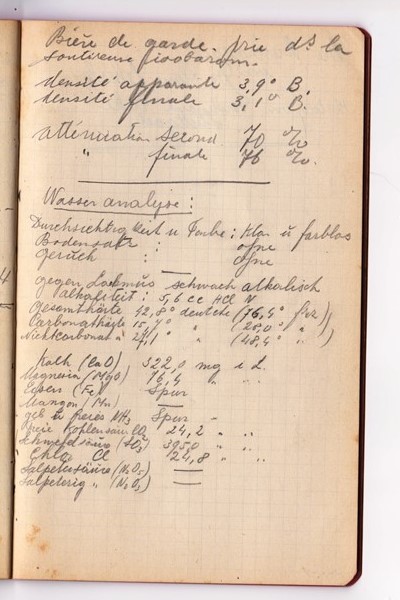 Bière de garde. prie ds la
soutireuse
densité apparante 3,9° B.
densité finale 3,1° B.
atténuation second. 70 %
" finale 76 %.
Wasser analyse :
Durchsichtigkeit u Farbe : klar u farblos
Bodensatz : ohne
Geruch : ohne
gegen Lackmus schwach alkalisch
Alkalität : 5,6 cc HCl N
Gesamthärte 42,8° deutche (76,4° frz)
Carbonathärte 15,7° " (28,0° " )
Nichtcarbonat " 27,1° " (48,4° " )
Kalk (CaO) 322,0 mg i L.
Magnesia (MgO) 76,4 " " "
Eisen (Fe) Spur
Mangan (Mn) —
geb u freies NH3 Spur -
freie Kohlensäu CO2 24,2 " "
Schwefelsäure (SO3) 395,0 " "
Chlor Cl 24,8 " "
Salpetersäure (N2O5) —
Salpetrig " (N2O3) —